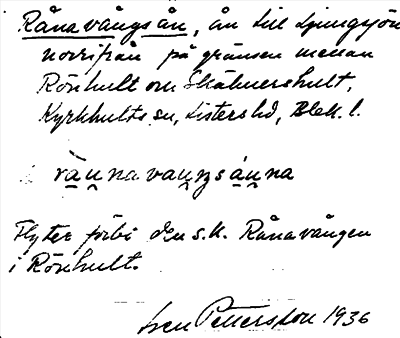 Rånavångsån, ån till Ljungsjön
norrifrån på gränsen mellan
Rönhult om Skälmershult,
Kyrkhults sn, Listers hd, Blek. l.
rä̀u̯navau̯ŋsá̤u̯na
Flyter förbi den s.k. Rånavången
i Rönhult.
Sven Pettersson 1936